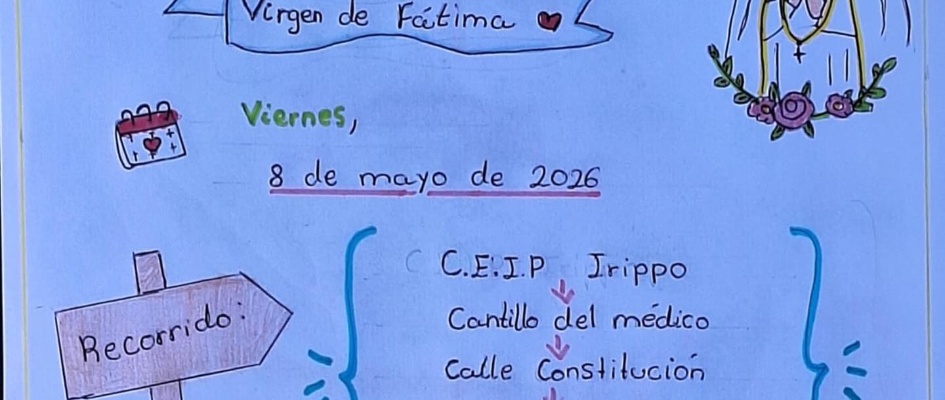 Virgen de Fátima
Viernes,
8 de mayo de 2026
Recorrido:
C.E.I.P Irippo
Cantillo del médico
Calle Constitución